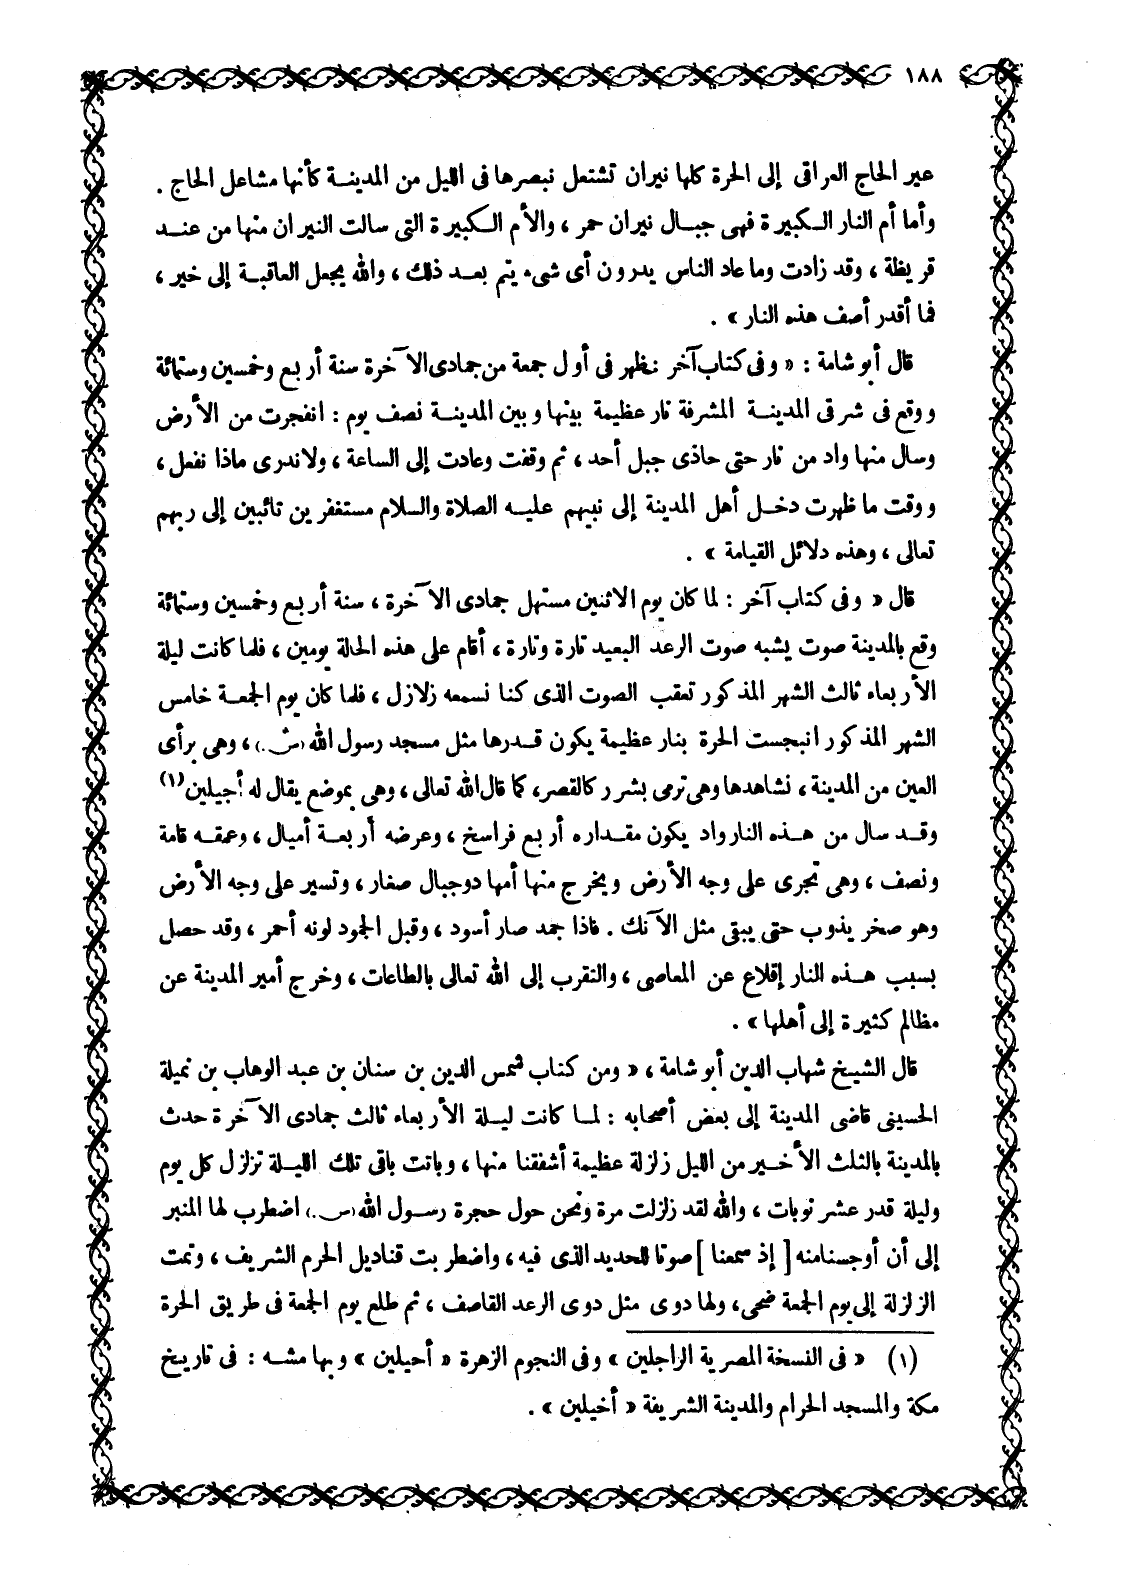 ١٨٨
عير الحاج العراقى إلى الحرة كلها نيران تشتعل نبصرها فى الليل من المدينة كأنها مشاعل الحاج .
وأما أم النار الكبيرة فهى جبال نيران حمر ، والأم الكبيرة التى سالت النيران منها من عند
قريظة ، وقد زادت وما عاد الناس يدرون أى شىء يتم بعد ذلك ، والله يجعل العاقبة إلى خير ،
فما أقدر أصف هذه النار » .
قال أبو شامة : « وفى كتاب آخر نظهر فى أول جمعة من جمادى الآخرة سنة أربع وخمسين وستمائة
ووقع فى شرقى المدينة المشرفة نار عظيمة بينها وبين المدينة نصف يوم : انفجرت من الأرض
وسال منها واد من نار حتى حاذى جبل أحد ، ثم وقفت وعادت إلى الساعة ، ولا ندرى ماذا نفعل ،
ووقت ما ظهرت دخل أهل المدينة إلى نبيهم عليه الصلاة والسلام مستغفرين تائبين إلى ربهم
تعالى ، وهذه دلائل القيامة » .
قال « وفى كتاب آخر : لما كان يوم الاثنين مستهل جمادى الآخرة ، سنة أربع وخمسين وستمائة
وقع بالمدينة صوت يشبه صوت الرعد البعيد تارة وتارة ، أقام على هذه الحالة يومين ، فلما كانت ليلة
الأربعاء ثالث الشهر المذكور تعقب الصوت الذى كنا نسمعه زلازل ، فلما كان يوم الجمعة خامس
الشهر المذكور انبجست الحرة بنار عظيمة يكون قدرها مثل مسجد رسول الله (ص.) ، وهى برأى
العين من المدينة ، نشاهدها وهى ترمى بشرر كالقصر، كما قال الله تعالى ، وهى بموضع يقال له أجيلين (١)
وقد سال من هذه النار واد يكون مقداره أربع فراسخ ، وعرضه أربعة أميال ، وعمقه قامة
ونصف ، وهى تجرى على وجه الأرض ويخرج منها أمهاد وجبال صغار ، وتسير على وجه الأرض
وهو صخر يذوب حتى يبقى مثل الآنك . فاذا جمد صار أسود ، وقبل الجمود لونه أحمر ، وقد حصل
بسبب هذه النار إقلاع عن المعاصى ، والتقرب إلى الله تعالى بالطاعات ، وخرج أمير المدينة عن
مظالم كثيرة إلى أهلها » .
قال الشيخ شهاب الدين أبو شامة ، « ومن كتاب شمس الدين بن سنان بن عبد الوهاب بن نميلة
الحسينى قاضى المدينة إلى بعض أصحابه : لما كانت ليلة الأربعاء ثالث جمادى الآخرة حدث
بالمدينة بالثلث الأخير من الليل زلزلة عظيمة أشفقنا منها ، وباتت باقى تلك الليلة تزلزل كل يوم
وليلة قدر عشر نوبات ، والله لقد زلزلت مرة ونحن حول حجرة رسول الله (ص.) اضطرب لها المنبر
إلى أن أوجسنا منه [ إذ سمعنا ] صوتا للحديد الذى فيه ، واضطربت قناديل الحرم الشريف ، وتمت
الزلزلة إلى يوم الجمعة ضحى، ولها دوى مثل دوى الرعد القاصف ، ثم طلع يوم الجمعة فى طريق الحرة
(١) « فى النسخة المصرية الراجلين » وفى النجوم الزهرة « أحيلين » وبها مشه : فى تاريخ
مكة والمسجد الحرام والمدينة الشريفة « أخيلين » .